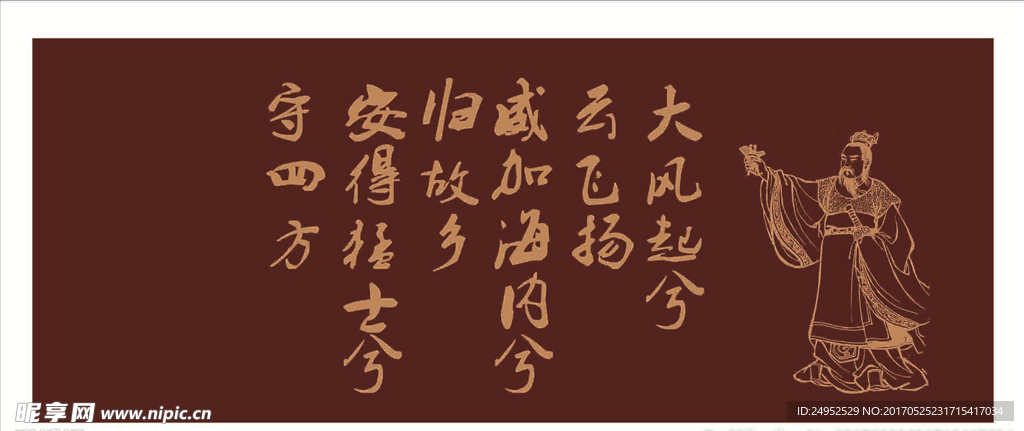 大风起兮
云飞扬
威加海内兮
归故乡
安得猛士兮
守四方
昵享网 www.nipic.cn
ID:24952529 NO:20170525231715417034